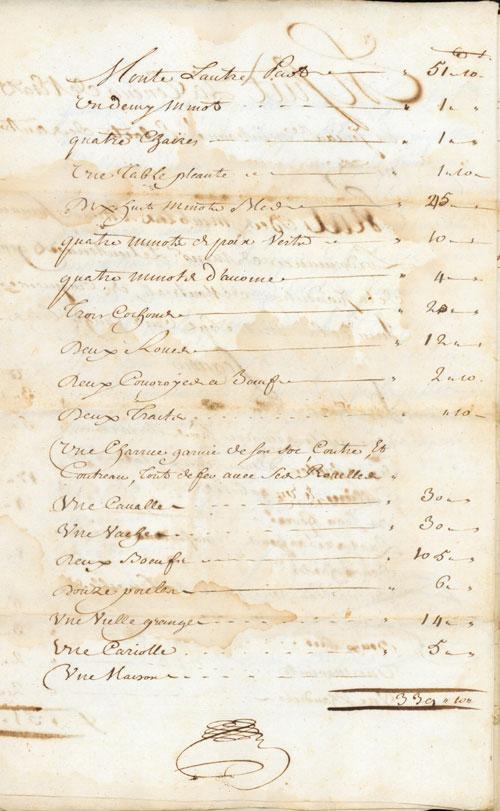 Monte Lautre Part " 51 " 10 "
Un demy minot " 1 " "
quatre Chaises " 1 " "
Une Table pleante " 1 " 10 "
Dix huit minots Bled " 45 " "
quatre minots de poix Verts " 10 " "
quatre minots d'auoine " 4 " "
Trois Cochons " 20 " "
Deux Roues " 12 " "
Deux Couroyes a Boeufs " 2 " 10 "
Deux Traits " " 10 "
Une Charrue garnie de son Soc, Coutre Et
Couteau, Tout de fer auec Ses Rouelles "
Une Caualle " 30 " "
Une Vache " 30 " "
Deux Boeufs " 105 " "
Douze poules " 6 " "
Une Vielle grange " 14 " "
Une Cariolle " 5 " "
Une Maison "
339 " 10 "